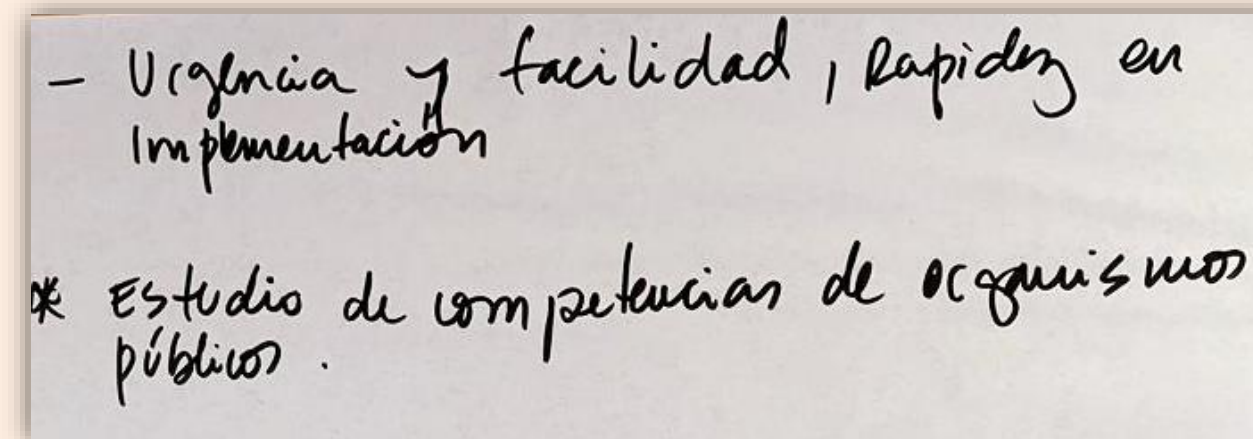 - Urgencia y facilidad, Rapidez en
Implementación
* Estudio de competencias de organismos
públicos.